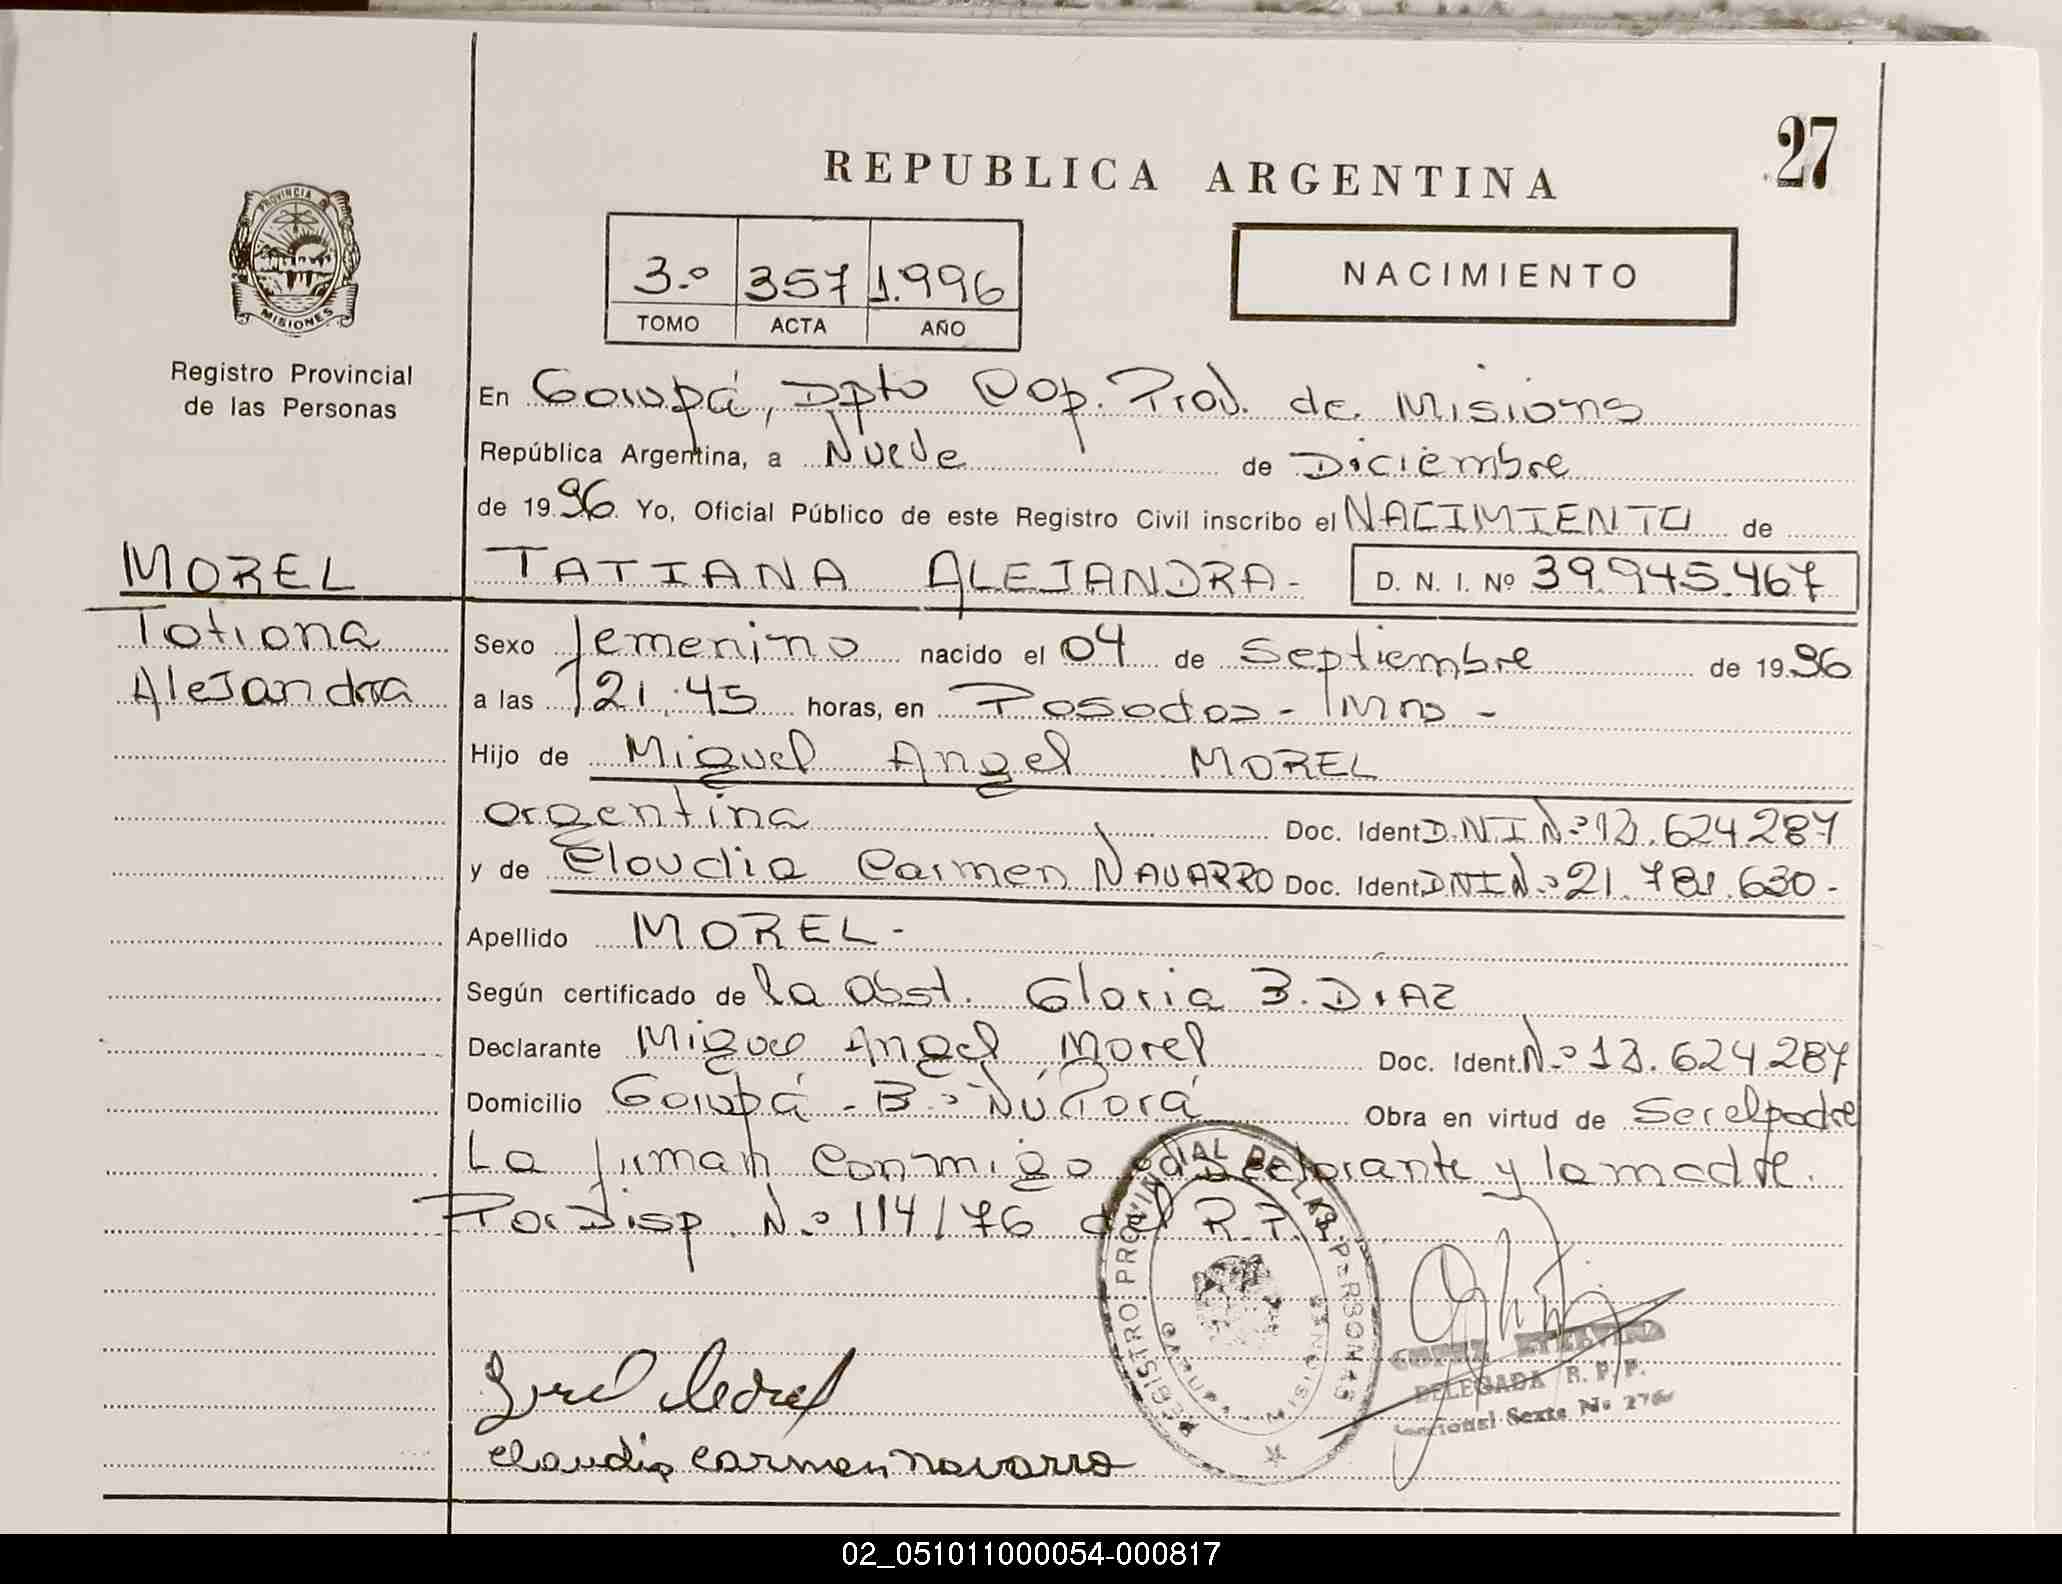 27
REPUBLICA ARGENTINA
PROVINCIA
MISIONES
3.º 357 1.996
TOMO ACTA AÑO
NACIMIENTO
Registro Provincial
de las Personas
En Garupá, Dpto Cap. Prov. de Misiones
República Argentina, a Nueve de Diciembre
de 1996 Yo, Oficial Público de este Registro Civil inscribo el NACIMIENTO de
MOREL
TATIANA ALEJANDRA- D. N. I. Nº 39.945.467
Tatiana
Alejandra
Sexo femenino nacido el 04 de Septiembre de 1996
a las 21:45 horas, en Posadas - Mns -
Hijo de Miguel Angel MOREL
argentina Doc. Ident D.N.I Nº 13.624287
y de Claudia Carmen NAVARRO Doc. Ident DNI Nº 21.781.630-
Apellido MOREL-
Según certificado de la Obst. Gloria B. DIAZ
Declarante Miguel Angel Morel Doc. Ident. Nº 13.624287
Domicilio Garupá - Bº Ñú Porá Obra en virtud de Ser el padre
La firman conmigo el Declarante y la madre.
Por Disp. Nº 114/76 del R.P.P.
REGISTRO PROVINCIAL DE LAS PERSONAS
DELEGADA R. P. P.
Seccional Sexta No 276
Morel
Claudia Carmen Navarro
02_051011000054-000817